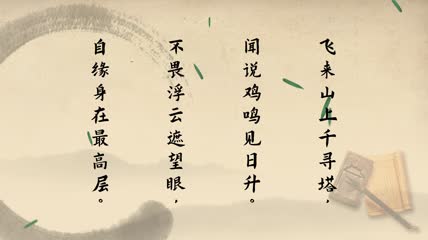 飞来山上千寻塔，
闻说鸡鸣见日升。
不畏浮云遮望眼，
自缘身在最高层。